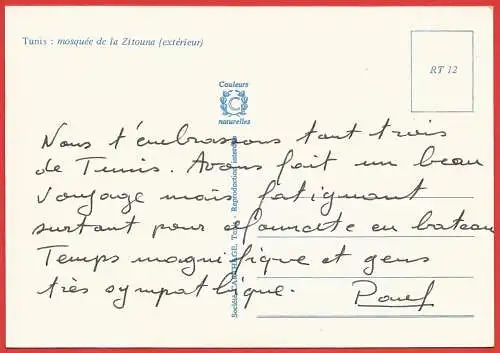 Tunis : mosquée de la Zitouna (extérieur)
RT 12
Couleurs
C
naturelles
Nous t'embrassons tout trois
de Tunis. Avons fait un beau
voyage mais fatiguant
surtout pour en bateau
Temps magnifique et gens
très sympathique.
Société CARTHAGE, Tunis - Reproduction interdite